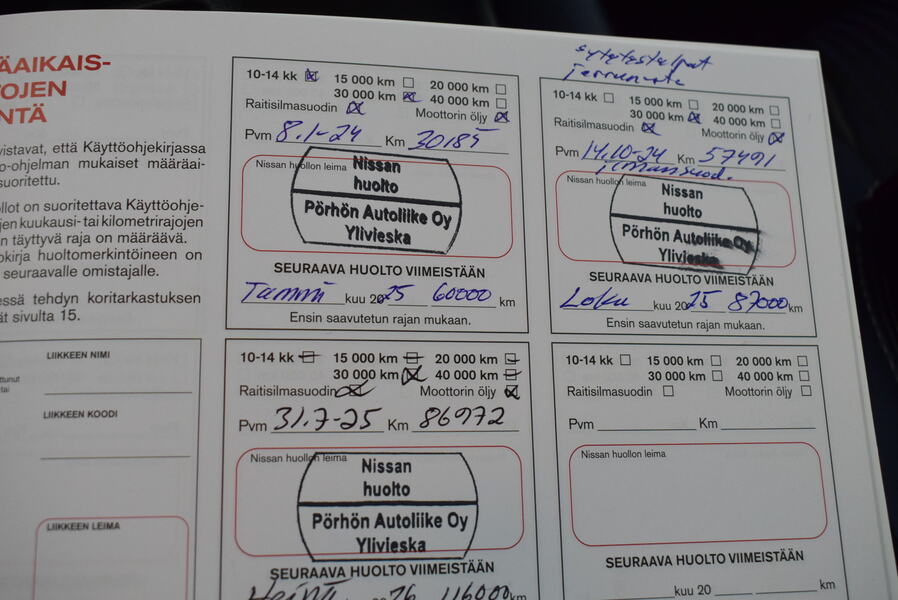 ÄAIKAIS-
OJEN
NTÄ
vistavat, että Käyttöohjekirjassa
o-ohjelman mukaiset määräai-
suoritettu.
llot on suoritettava Käyttöohje-
jen kuukausi- tai kilometrirajojen
n täyttyvä raja on määräävä.
okirja huoltomerkintöineen on
seuraavalle omistajalle.
essä tehdyn koritarkastuksen
ät sivulta 15.
10-14 kk 15 000 km 20 000 km
30 000 km 40 000 km
Raitisilmasuodin Moottorin öljy
Pvm 8.1-24 Km 30185
Nissan huollon leima
Nissan
huolto
Pörhön Autoliike Oy
Ylivieska
SEURAAVA HUOLTO VIIMEISTÄÄN
Tammi kuu 2025 60000 km
Ensin saavutetun rajan mukaan.
10-14 kk 15 000 km 20 000 km
30 000 km 40 000 km
Raitisilmasuodin Moottorin öljy
Pvm 14.10-24 Km 57491
ilmansuod.
Nissan huollon leima
Nissan
huolto
Pörhön Autoliike Oy
Ylivieska
SEURAAVA HUOLTO VIIMEISTÄÄN
Loku kuu 2025 87000 km
Ensin saavutetun rajan mukaan.
LIIKKEEN NIMI
ttunut
tai
LIIKKEEN KOODI
LIIKKEEN LEIMA
10-14 kk 15 000 km 20 000 km
30 000 km 40 000 km
Raitisilmasuodin Moottorin öljy
Pvm 31.7-25 Km 86972
Nissan huollon leima
Nissan
huolto
Pörhön Autoliike Oy
Ylivieska
SEURAAVA HUOLTO VIIMEISTÄÄN
Heinä 26 116000 km
10-14 kk 15 000 km 20 000 km
30 000 km 40 000 km
Raitisilmasuodin Moottorin öljy
Pvm Km
Nissan huollon leima
SEURAAVA HUOLTO VIIMEISTÄÄN
kuu 20 km